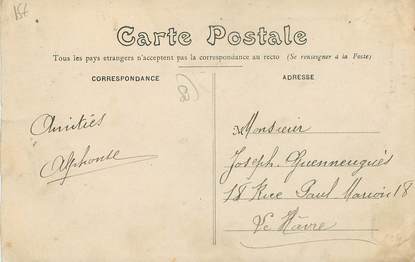 15€
Carte Postale
Tous les pays etrangers n'acceptent pas la correspondance au recto (Se renseigner à la Poste)
CORRESPONDANCE
ADRESSE
Amitiés
Alphonse
Monsieur
Joseph Guennengués
18 Rue Paul Marion 18
Le Hâvre